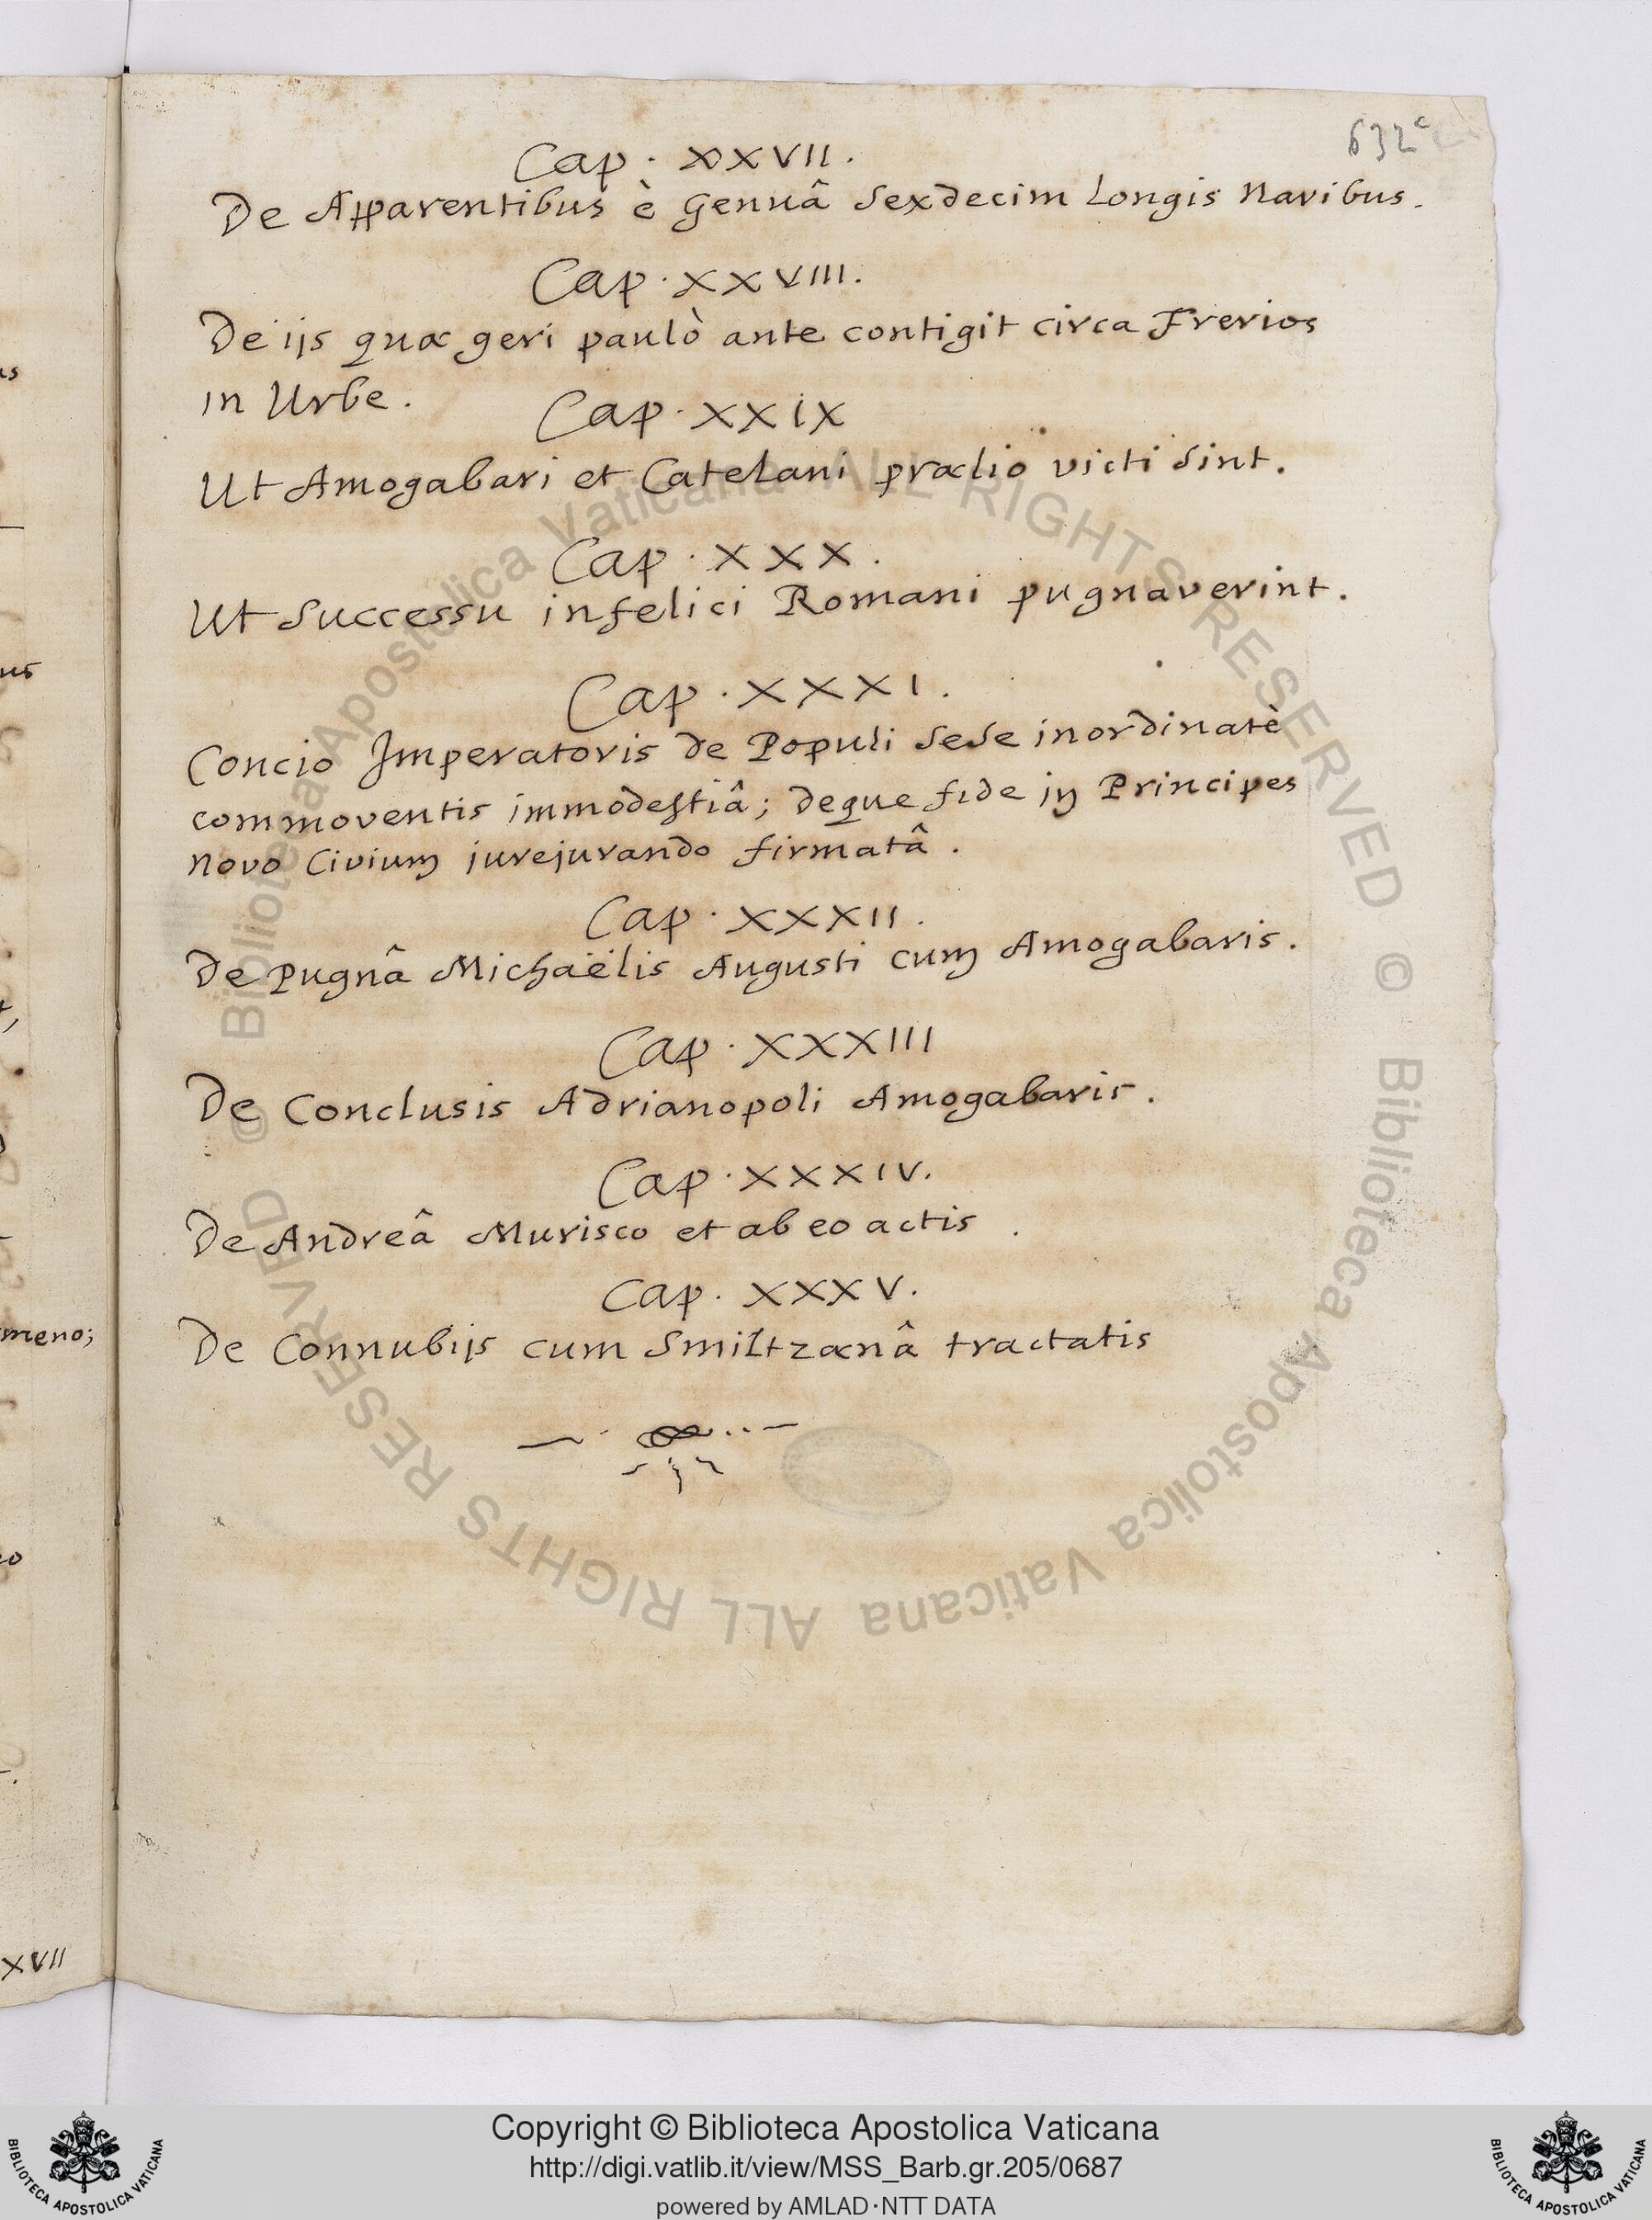 632c
Cap. XXVII.
De Apparentibus è Genuâ Sexdecim Longis Navibus.
Cap. XXVIII.
De ijs quæ geri paulò ante contigit circa Frerios
in Urbe.
Cap. XXIX
Ut Amogabari et Catelani prælio victi sint.
Cap. XXX.
Ut Successu infelici Romani pugnaverint.
Cap. XXXI.
Concio Imperatoris de Populi sese inordinatè
commoventis immodestiâ; deque fide in Principes
novo Civium jurejurando firmatâ.
Cap. XXXII.
De Pugnâ Michaëlis Augusti cum Amogabaris.
Cap. XXXIII
De Conclusis Adrianopoli Amogabaris.
Cap. XXXIV.
De Andreâ Murisco et ab eo actis.
Cap. XXXV.
De Connubijs cum Smiltzænâ tractatis
us
meno;
XVII
© Biblioteca Apostolica Vaticana ALL RIGHTS RESERVED © Biblioteca Apostolica Vaticana ALL RIGHTS RESERVED
BIBLIOTECA APOSTOLICA VATICANA
Copyright © Biblioteca Apostolica Vaticana
http://digi.vatlib.it/view/MSS_Barb.gr.205/0687
powered by AMLAD·NTT DATA
BIBLIOTECA APOSTOLICA VATICANA